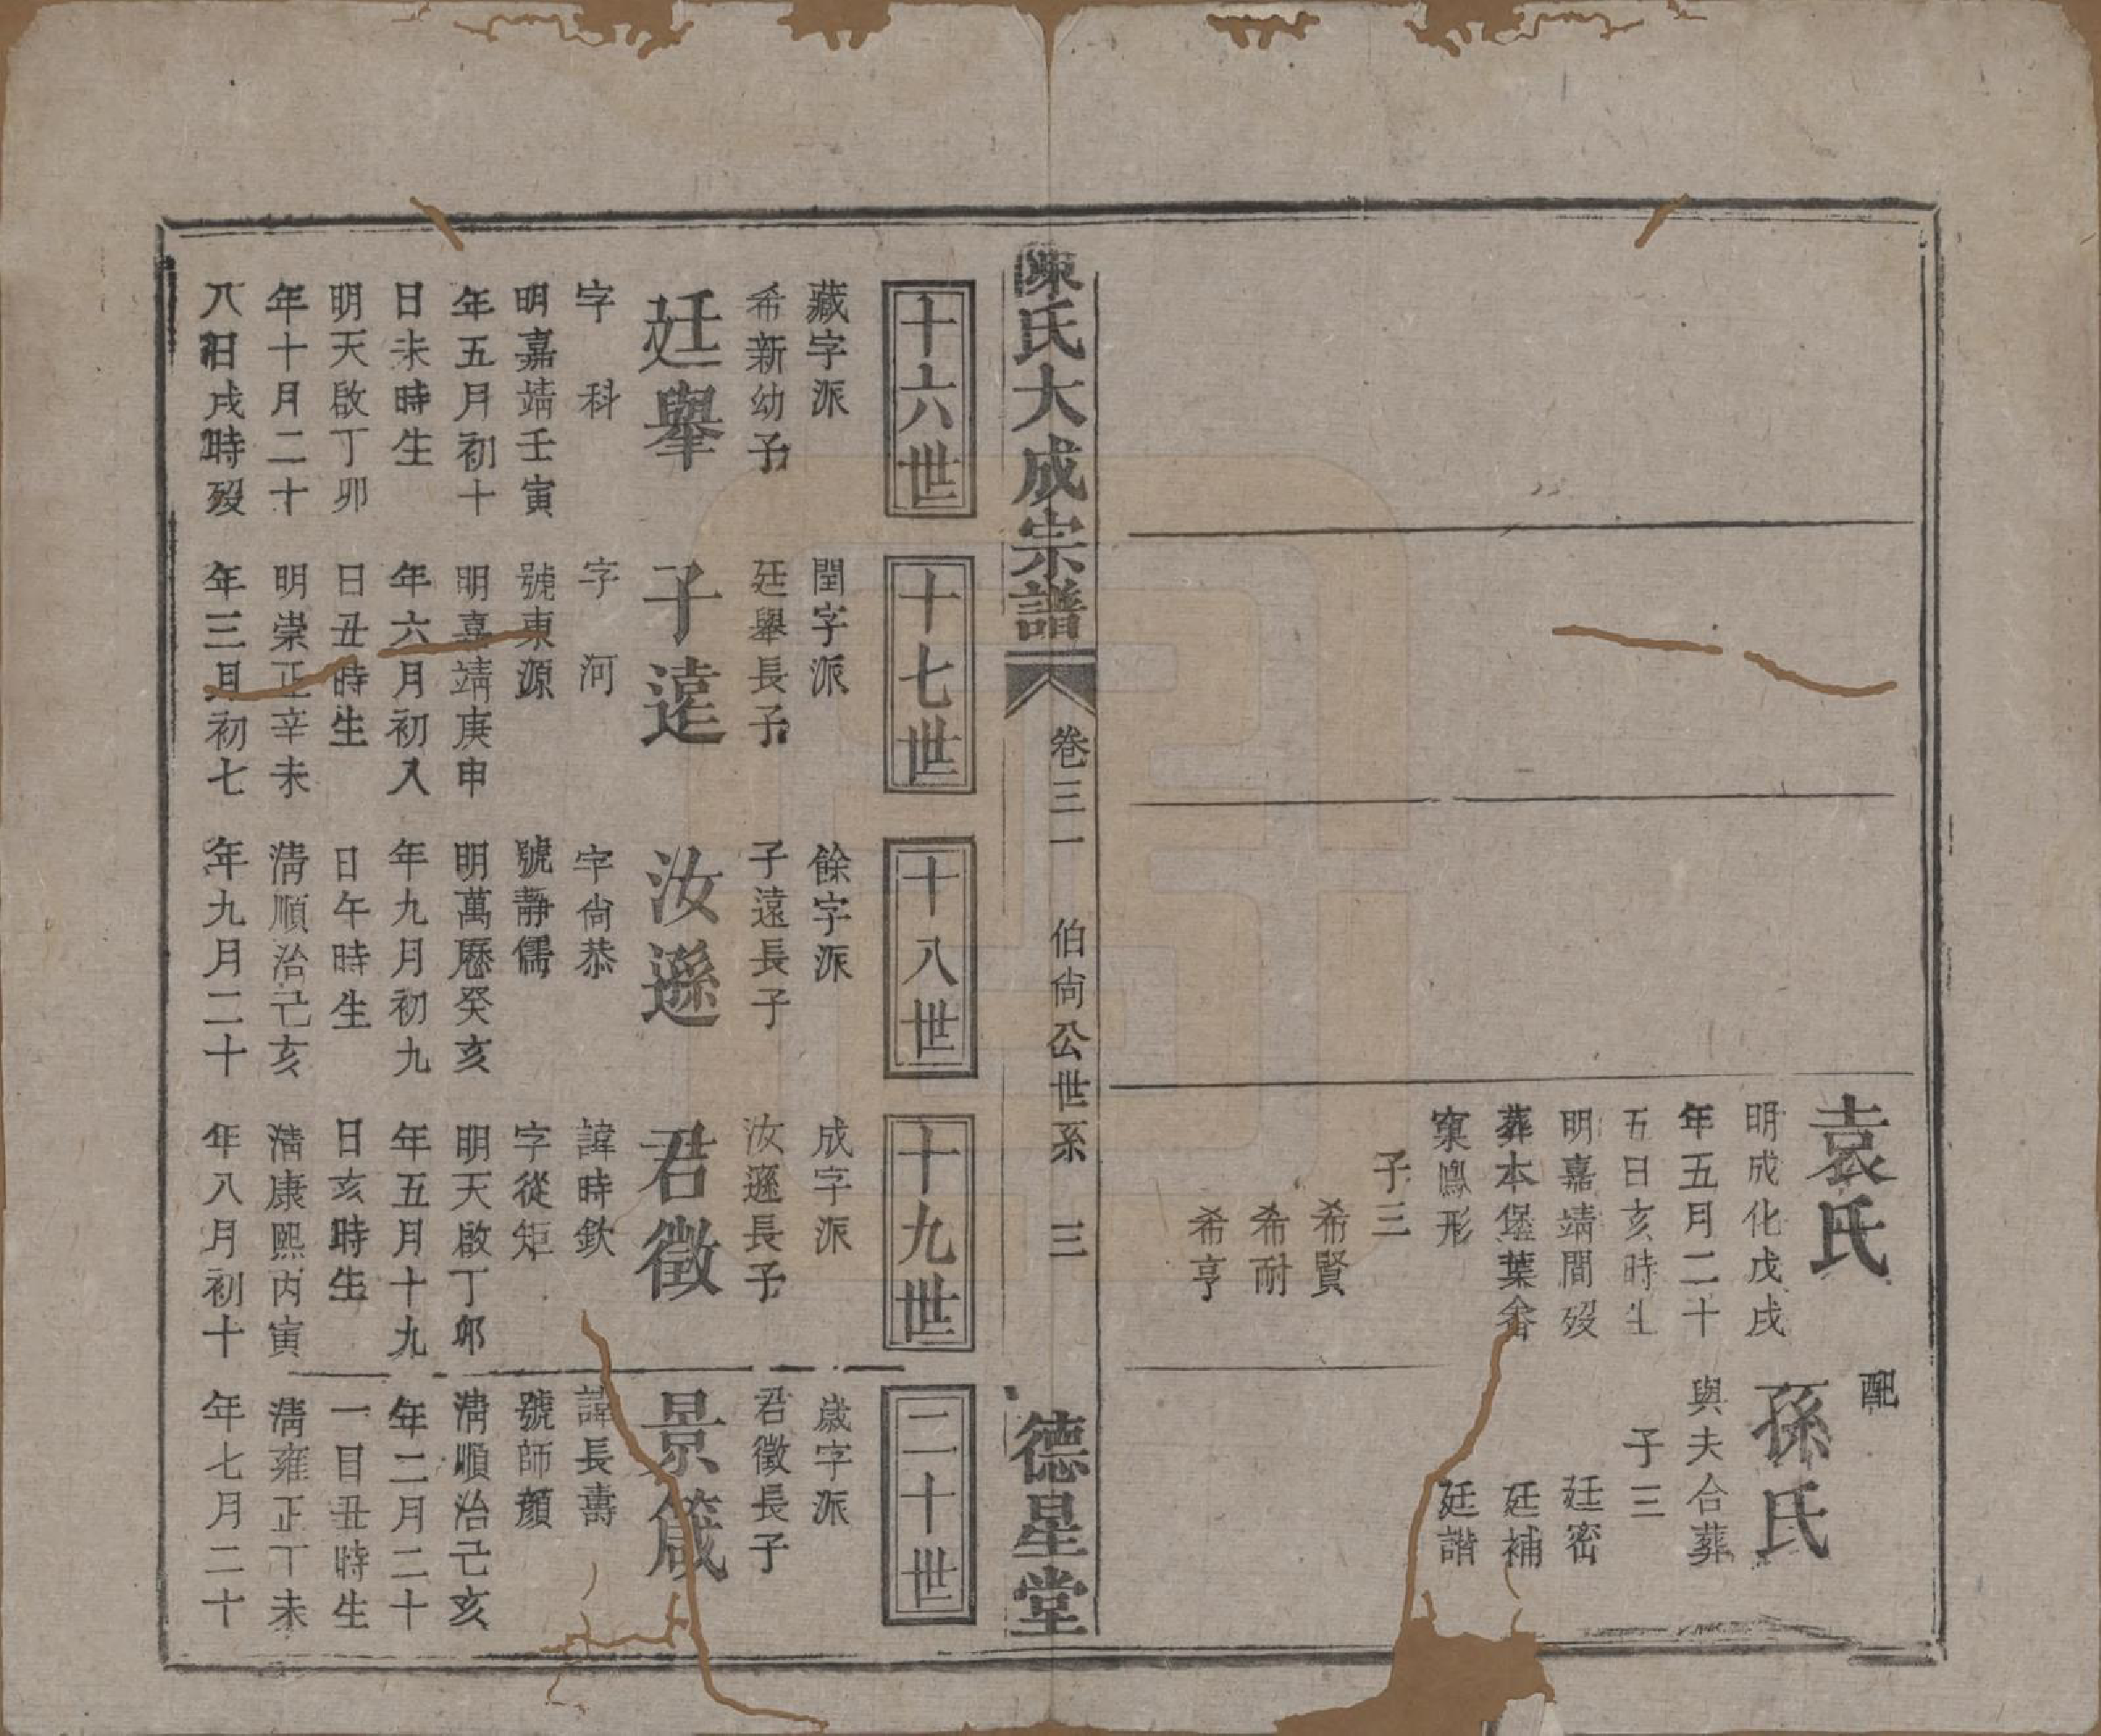 袁氏
明成化戊戌
年五月二十
五日亥時生
明嘉靖間歿
葬本堡葉畲
窠鳳形
子三
希賢
希耐
希亨
配
孫氏
與夫合葬
子三
廷密
廷補
廷諧
陳氏大成宗譜
卷三一
伯尙公世系
三
德星堂
十六世
藏字派
希新幼子
廷舉
字科
明嘉靖壬寅
年五月初十
日未時生
明天啟丁卯
年十月二十
八日戌時歿
十七世
閏字派
廷舉長子
子遠
字河
號東源
明嘉靖庚申
年六月初八
日丑時生
明崇正辛未
年三月初七
十八世
餘字派
子遠長子
汝遜
字尙恭
號靜儒
明萬曆癸亥
年九月初九
日午時生
淸順治己亥
年九月二十
十九世
成字派
汝遜長子
君徵
諱時欽
字從矩
明天啟丁卯
年五月十九
日亥時生
淸康熙丙寅
年八月初十
二十世
歲字派
君徵長子
景箴
諱長壽
號師顏
淸順治己亥
年二月二十
一日丑時生
淸雍正丁未
年七月二十